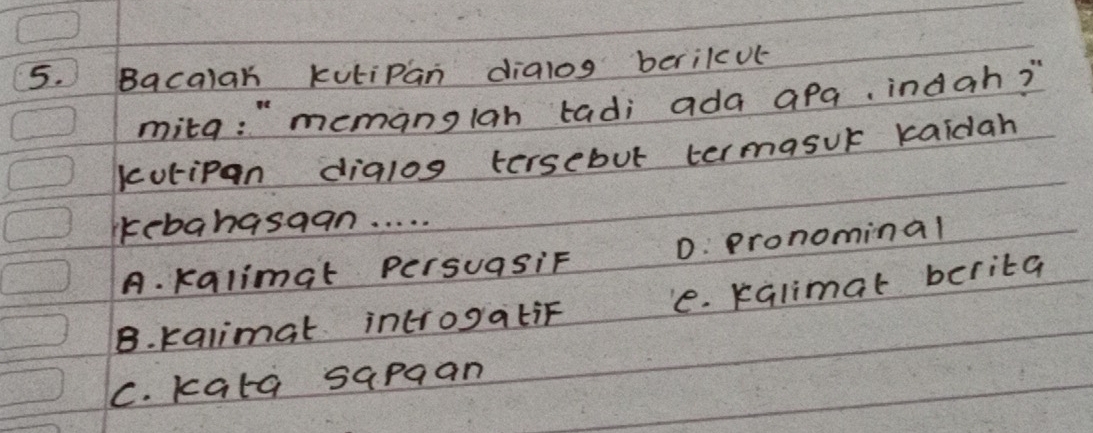 5. Bacalah kutipan dialog berikut
mita: "memanglah tadi ada apa, indah?"
kutipan dialog tersebut termasuk kaidah
kebahasaan.....
A. Kalimat Persuasif
D. Pronominal
B. Kalimat introgatif
e. Kalimat berita
C. Kata sapaan